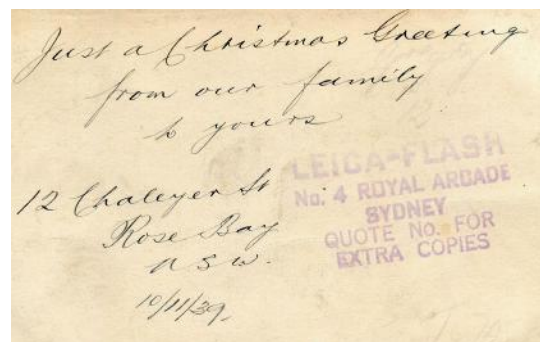 Just a Christmas Greeting
from our family
to yours
12 Chaleyer St
Rose Bay
N S W.
10/11/39.
LEICA-FLASH
No. 4 ROYAL ARCADE
SYDNEY
QUOTE No. FOR
EXTRA COPIES